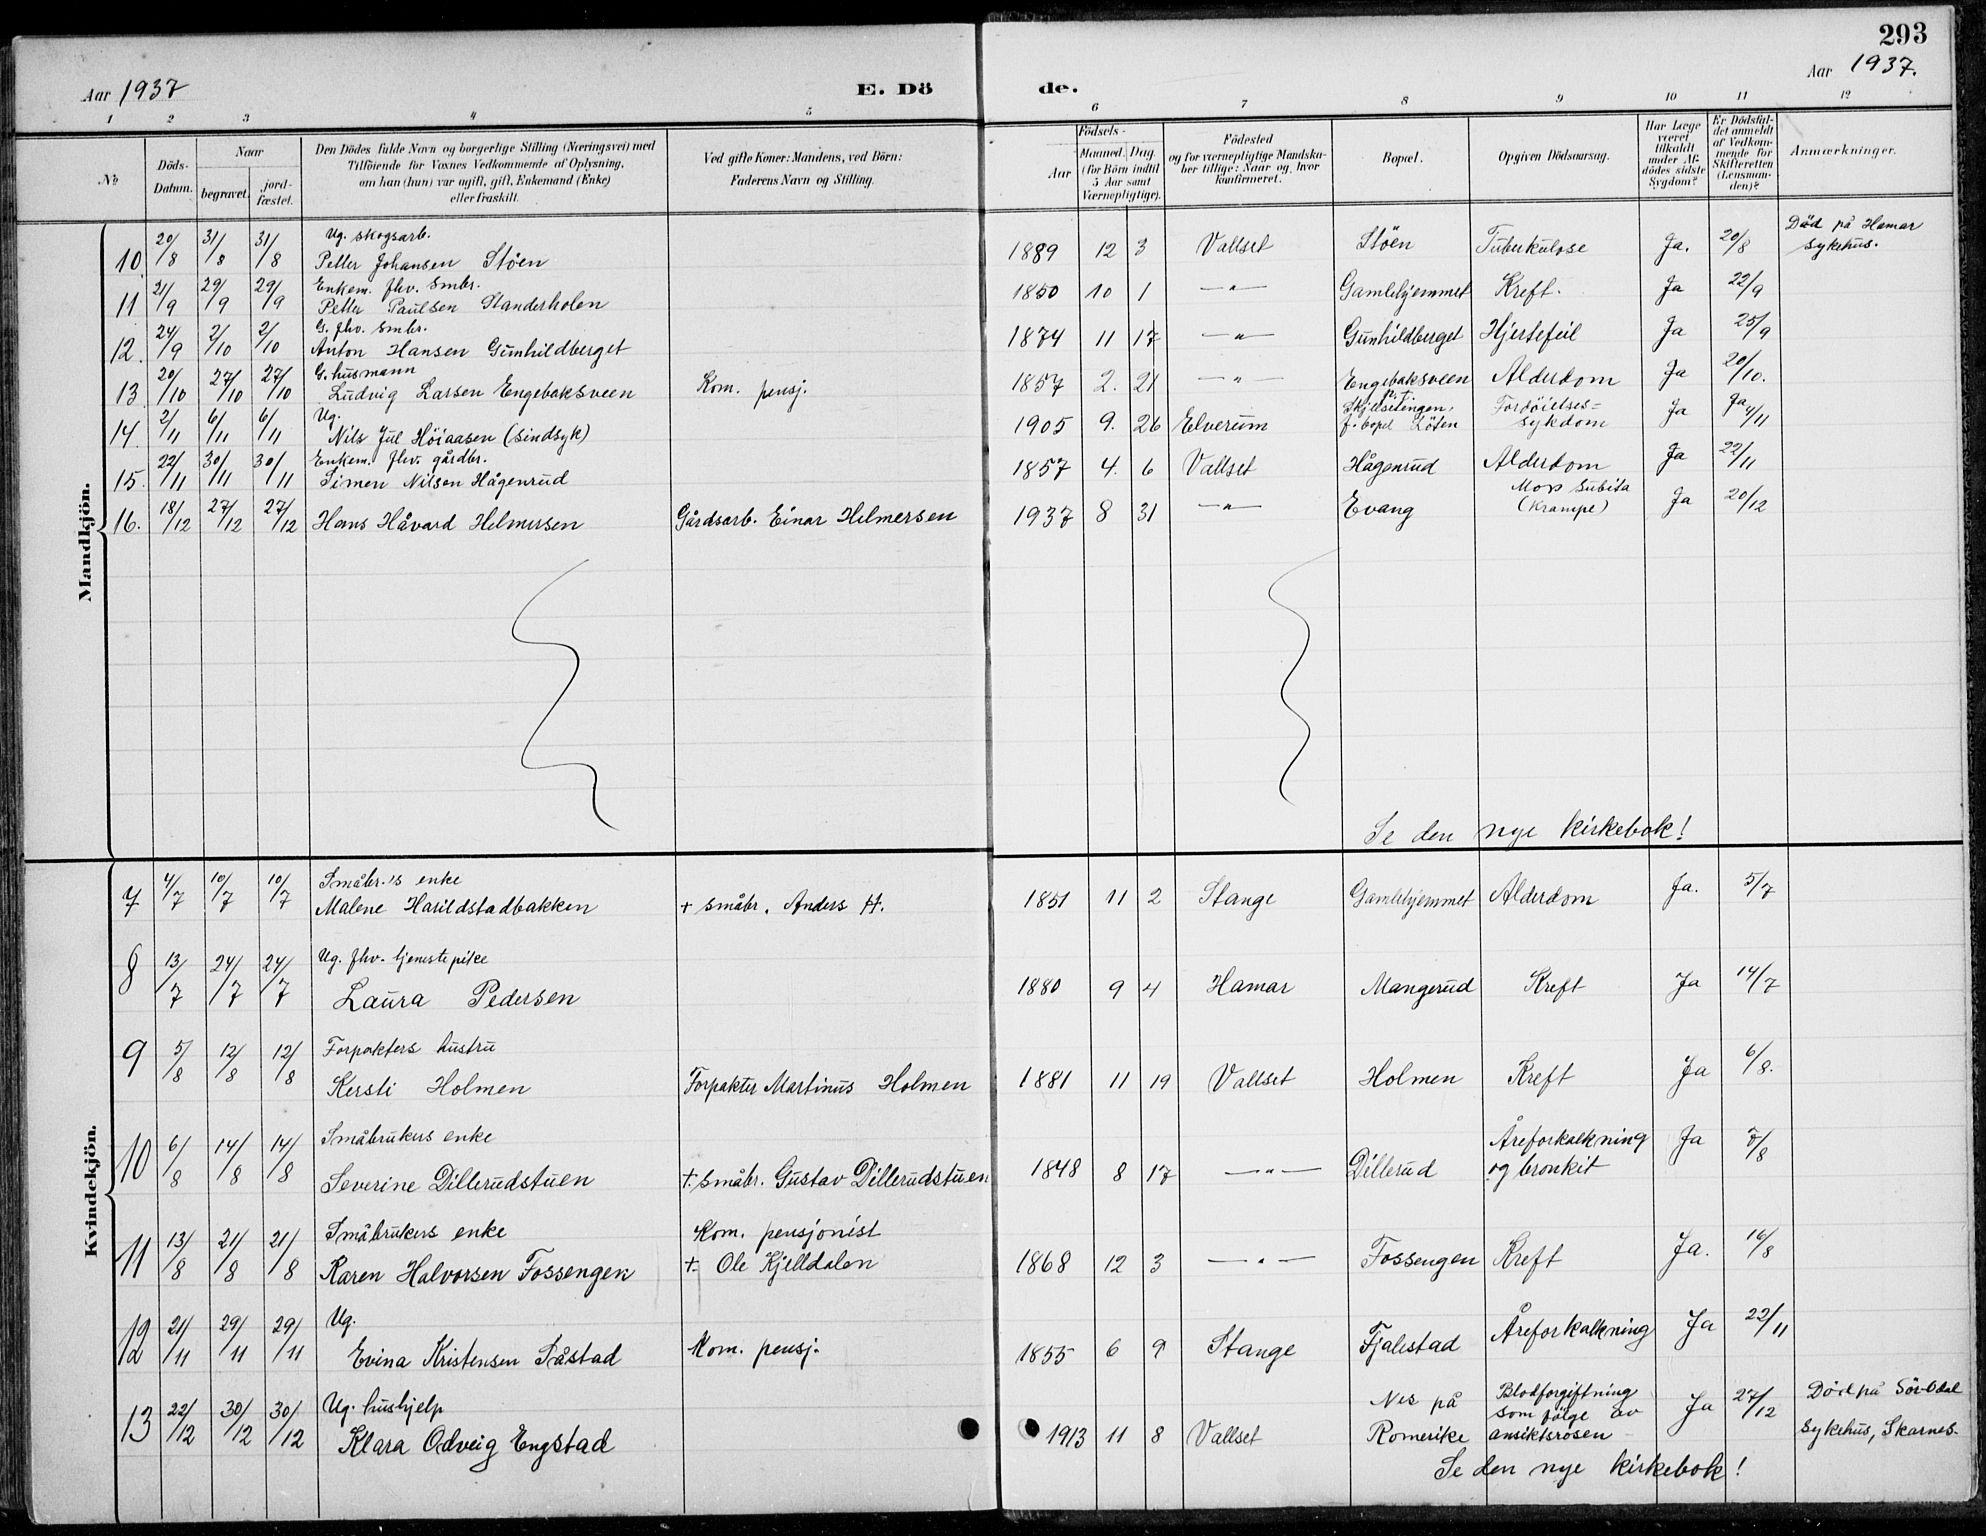 293
Aar 1937
E. Dö
de.
Aar 1937.
1 2 3 4 5 6 7 8 9 10 11 12
№
Döds-Datum.
Naar
begravet.
jord-fæstet.
Den Dödes fulde Navn og borgerlige Stilling (Næringsvei) med
Tilföiende for Voxnes Vedkommende af Oplysning,
om han (hun) var ugift, gift, Enkemand (Enke)
eller fraskilt.
Ved gifte Koner: Mandens, ved Börn:
Faderens Navn og Stilling.
Födsels-
Aar
Maaned. Dag.
(for Börn indtil
5 Aar samt
Værnepligtige).
Födested
og for værnepligtige Mandska-
ber tillige: Naar og hvor
konfirmeret.
Bopæl.
Opgiven Dödsaarsag.
Har Læge
været
tilkaldt
under Af-
dödes sidste
Sygdom?
Er Dödsfal-
det anmeldt
af Vedkom-
mende for
Skifteretten
(Lensman-
den)?
Anmærkninger.
Mandkjön.
Ug. skogsarb.
10 20/8 31/8 31/8 Petter Johansen Stöen 1889 12 3 Vallset Stöen Tuberkulose Ja. 20/8 Död på Hamar
sykehus.
Enkem. fhv. smbr.
11 21/9 29/9 29/9 Petter Paulsen Standerholen 1850 10 1 —„— Gamlehjemmet Kreft. Ja 22/9
G. fhv. smbr.
12. 24/9 2/10 2/10 Anton Hansen Gunhildberget 1874 11 17 —„— Gunhildberget Hjertefeil Ja 25/9
G. husmann
13 20/10 27/10 27/10 Ludvig Larsen Engebaksveen Kom. pensj. 1857 2. 21 —„— Engebaksveen Alderdom Ja 20/10.
Ug.
14. 2/11 6/11 6/11 Nils Jul Höiaasen (sindsyk) 1905 9. 26 Elverum Skjelsetengen, Fordöielses=
f. bopel Löten sykdom Ja Ja 4/11
Enkem. fhv. gårdbr.
15. 22/11 30/11 30/11 Simen Nilsen Hågenrud 1857 4. 6 Vallset Hågenrud Alderdom Ja 22/11
16. 18/12 27/12 27/12 Hans Håvard Helmersen Gårdsarb. Einar Helmersen 1937 8 31 —„— Evang Mors subita
(krampe) Ja 20/12
Se den nye kirkebok!
Kvindekjön.
Småbr.'s enke
7 4/7 10/7 10/7 Malene Harildstadbakken + småbr. Anders H. 1851 11 2 Stange Gamlehjemmet Alderdom Ja. 5/7
Ug. fhv. tjenestepike
8 13/7 24/7 24/7 Laura Pedersen 1880 9 4 Hamar Mangerud Kreft Ja 14/7
Forpakters hustru
9 5/8 12/8 12/8 Kersti Holmen Forpakter Martinus Holmen 1881 11 19 Vallset Holmen Kreft Ja 6/8.
Småbrukers enke
10 6/8 14/8 14/8 Severine Dillerudstuen +. småbr. Gustav Dillerudstuen 1848 8 17 —„— Dillerud Åreforkalkning
og bronkit Ja 7/8
Småbrukers enke Kom. pensjonist
11 13/8 21/8 21/8 Karen Halvorsen Fossengen +. Ole Kjelldalen 1868 12 3 —„— Fossengen Kreft Ja. 16/8
Ug.
12 21/11 29/11 29/11 Evina Kristensen Såstad Kom. pensj. 1855 6 9 Stange Fjalestad Åreforkalkning Ja 22/11
Ug. hushjelp
13 22/12 30/12 30/12 Klara Odveig Engstad 1913 11 8 Vallset Nes på
Romerike Blodforgiftning
som følge av
ansiktsrosen Ja 27/12 Död på Sör-Odal
sykehus, Skarnes.
Se den nye kirkebok!